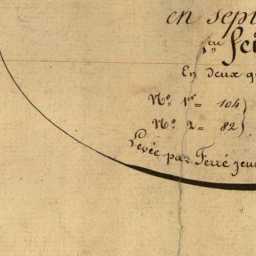 en sept
Sci
En deux qu
N.º 1er = 104)
N.º 2 = 82)
Levée par Ferré jeun